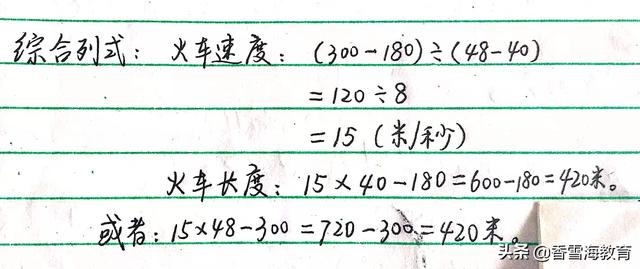 综合列式： 火车速度： (300-180)÷(48-40)
=120÷8
=15 (米/秒)
火车长度： 15×40-180=600-180=420米。
或者：15×48-300=720-300=420米。
头条 @香雪海教育